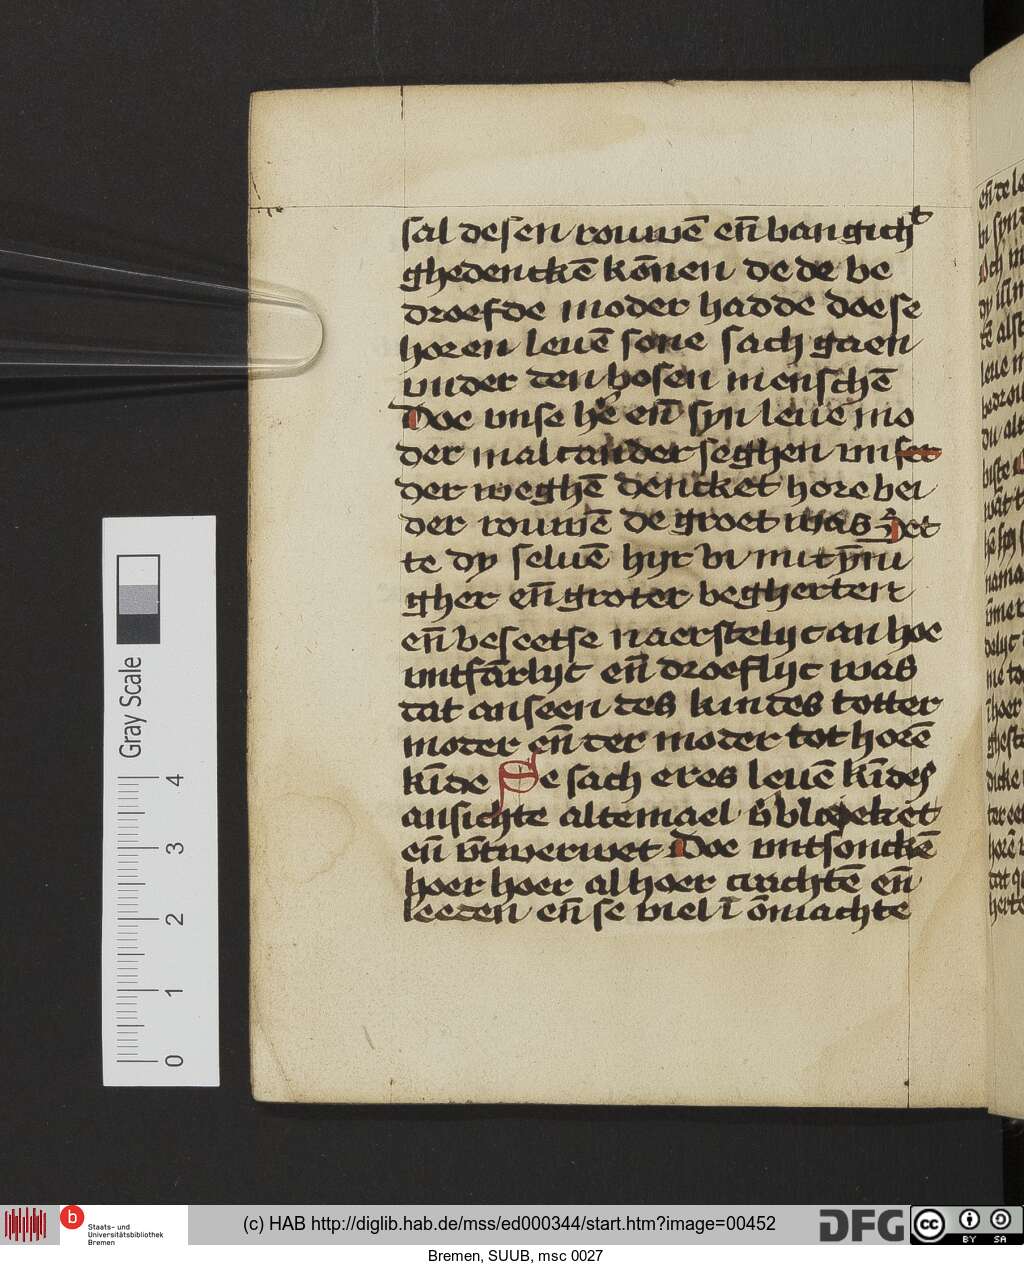 sal desen rouwē en̄ bangich͛t
ghedenckē kōnen de de be
droefde moder hadde doe se
horen leuē sone sach gaen
vnder den bosen menschē
Doe vnse he͛ en̄ syn leue mo
der malcander seghen vn ser
der weghē dencket hore bei
der rouwē de groet was Set
te dy seluē hyr bi mit ynni
gher en̄ groter begherten
en̄ beseetse naerstelyc an hoe
vntfarlyc en̄ droeflyc was
dat anseen des kindes totter
moder en̄ der moder tot horē
kīde Se sach eres leuē kīdes
ansichte altemael v̄bloeket
en̄ v̄twerwet Doe vntsonckē
hoer hoer al hoer crachtē en̄
leeden en̄ se viel ī ōmachte
Gray Scale
4
3
2
1
0
b
Staats- und
Universitätsbibliothek
Bremen
(c) HAB http://diglib.hab.de/mss/ed000344/start.htm?image=00452
DFG
cc
BY SA
Bremen, SUUB, msc 0027